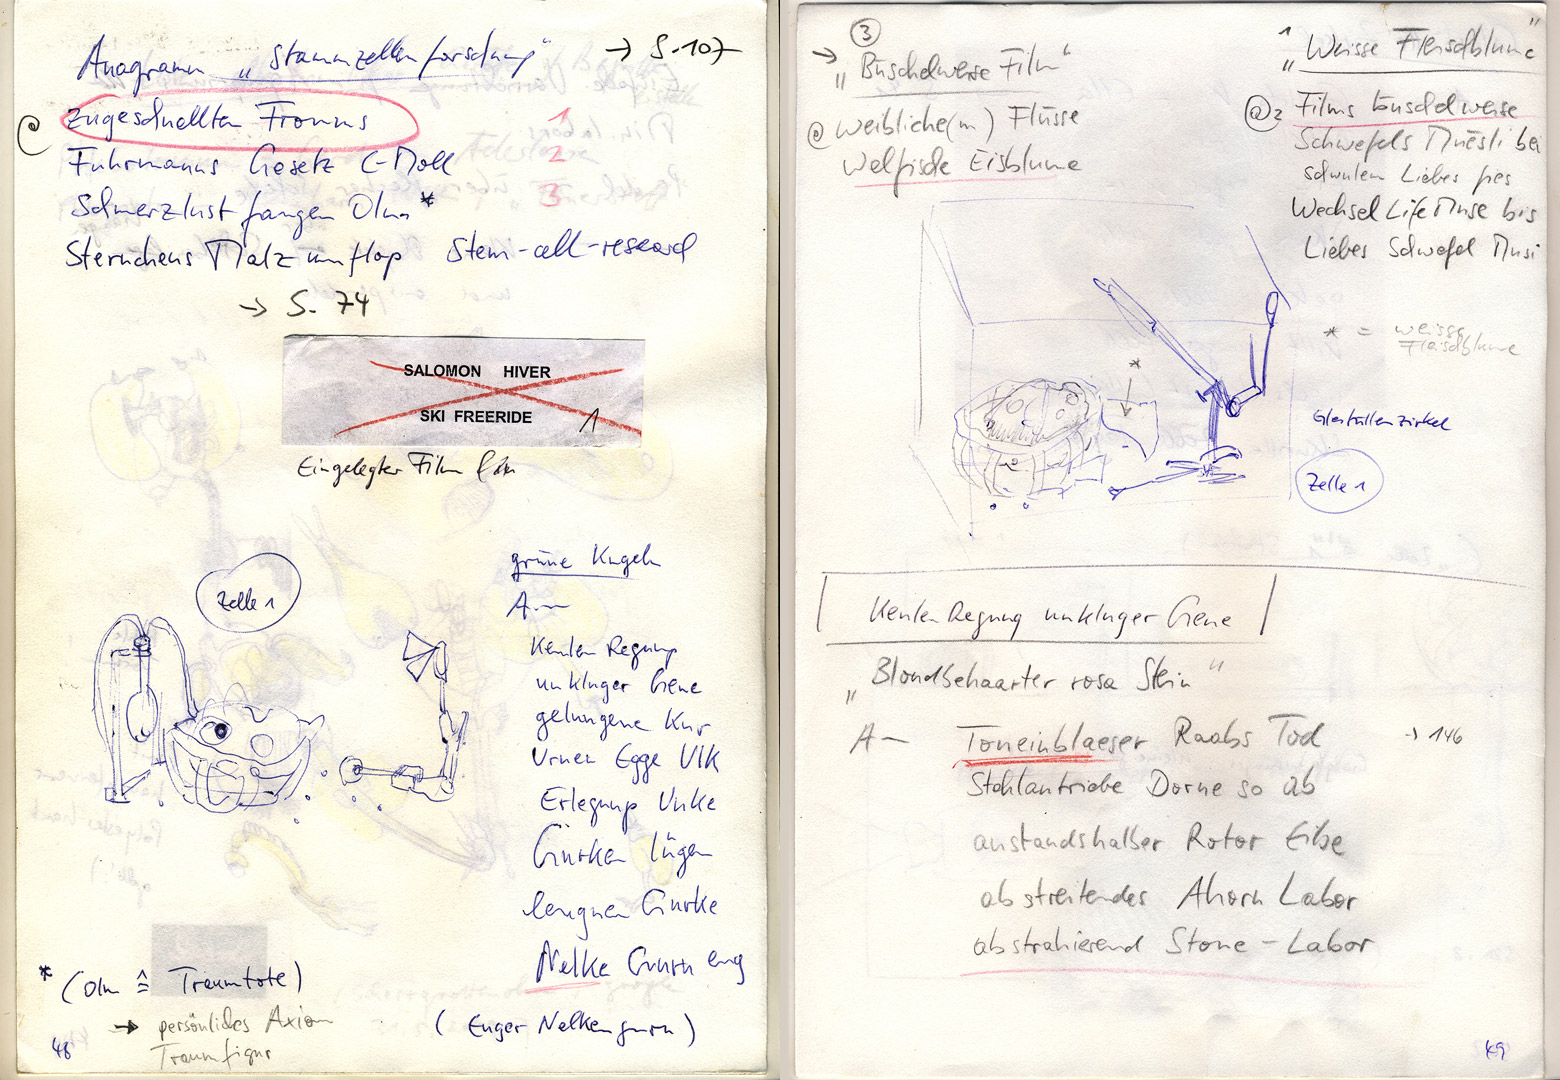 Anagramm „Stammzellenforschung“ → S. 107
@ zugeschnellten Fromms 1
Fuhrmanns Gesetz C-Moll 2
Schmerzlust fangen Olm * 3
Sternchens Malz umflog Stem-cell-research
→ S. 74
SALOMON HIVER
SKI FREERIDE 1
Eingelegter Film
Zelle 1
grüne Kugeln
A—
Keulen Regung
unkluger Gene
gelungene Kur
Urnen Egge Ulk
Erlegung Unke
Gurken lügen
leugnen Gurke
Nelke Gurn eng
(Enger Nelkengurn)
* (Olm ≙ Traumtote)
→ persönliches Axiom
Traumfigur
48
③
→ „Büschelweise Film“
@ weibliche(m) Flüsse
Welfische Eisblume
1
„Weisse Fleischblume“
@2 Films büschelweise
Schwefels Müesli bei
schwulem Liebes
Wechsel Life Muse bis
Liebes Schwefel Musi
* = weisse
Fleischblume
*
Zelle 1
Keulen Regung unkluger Gene
„Blondbehaarter rosa Stein“
A— Toneinblaeser Raabs Tod → 146
Stohlantriebe Dorne so ab
anstandshalber Rotor Eibe
abstreitendes Ahorn Labor
abstrahierend Stone-Labor
49